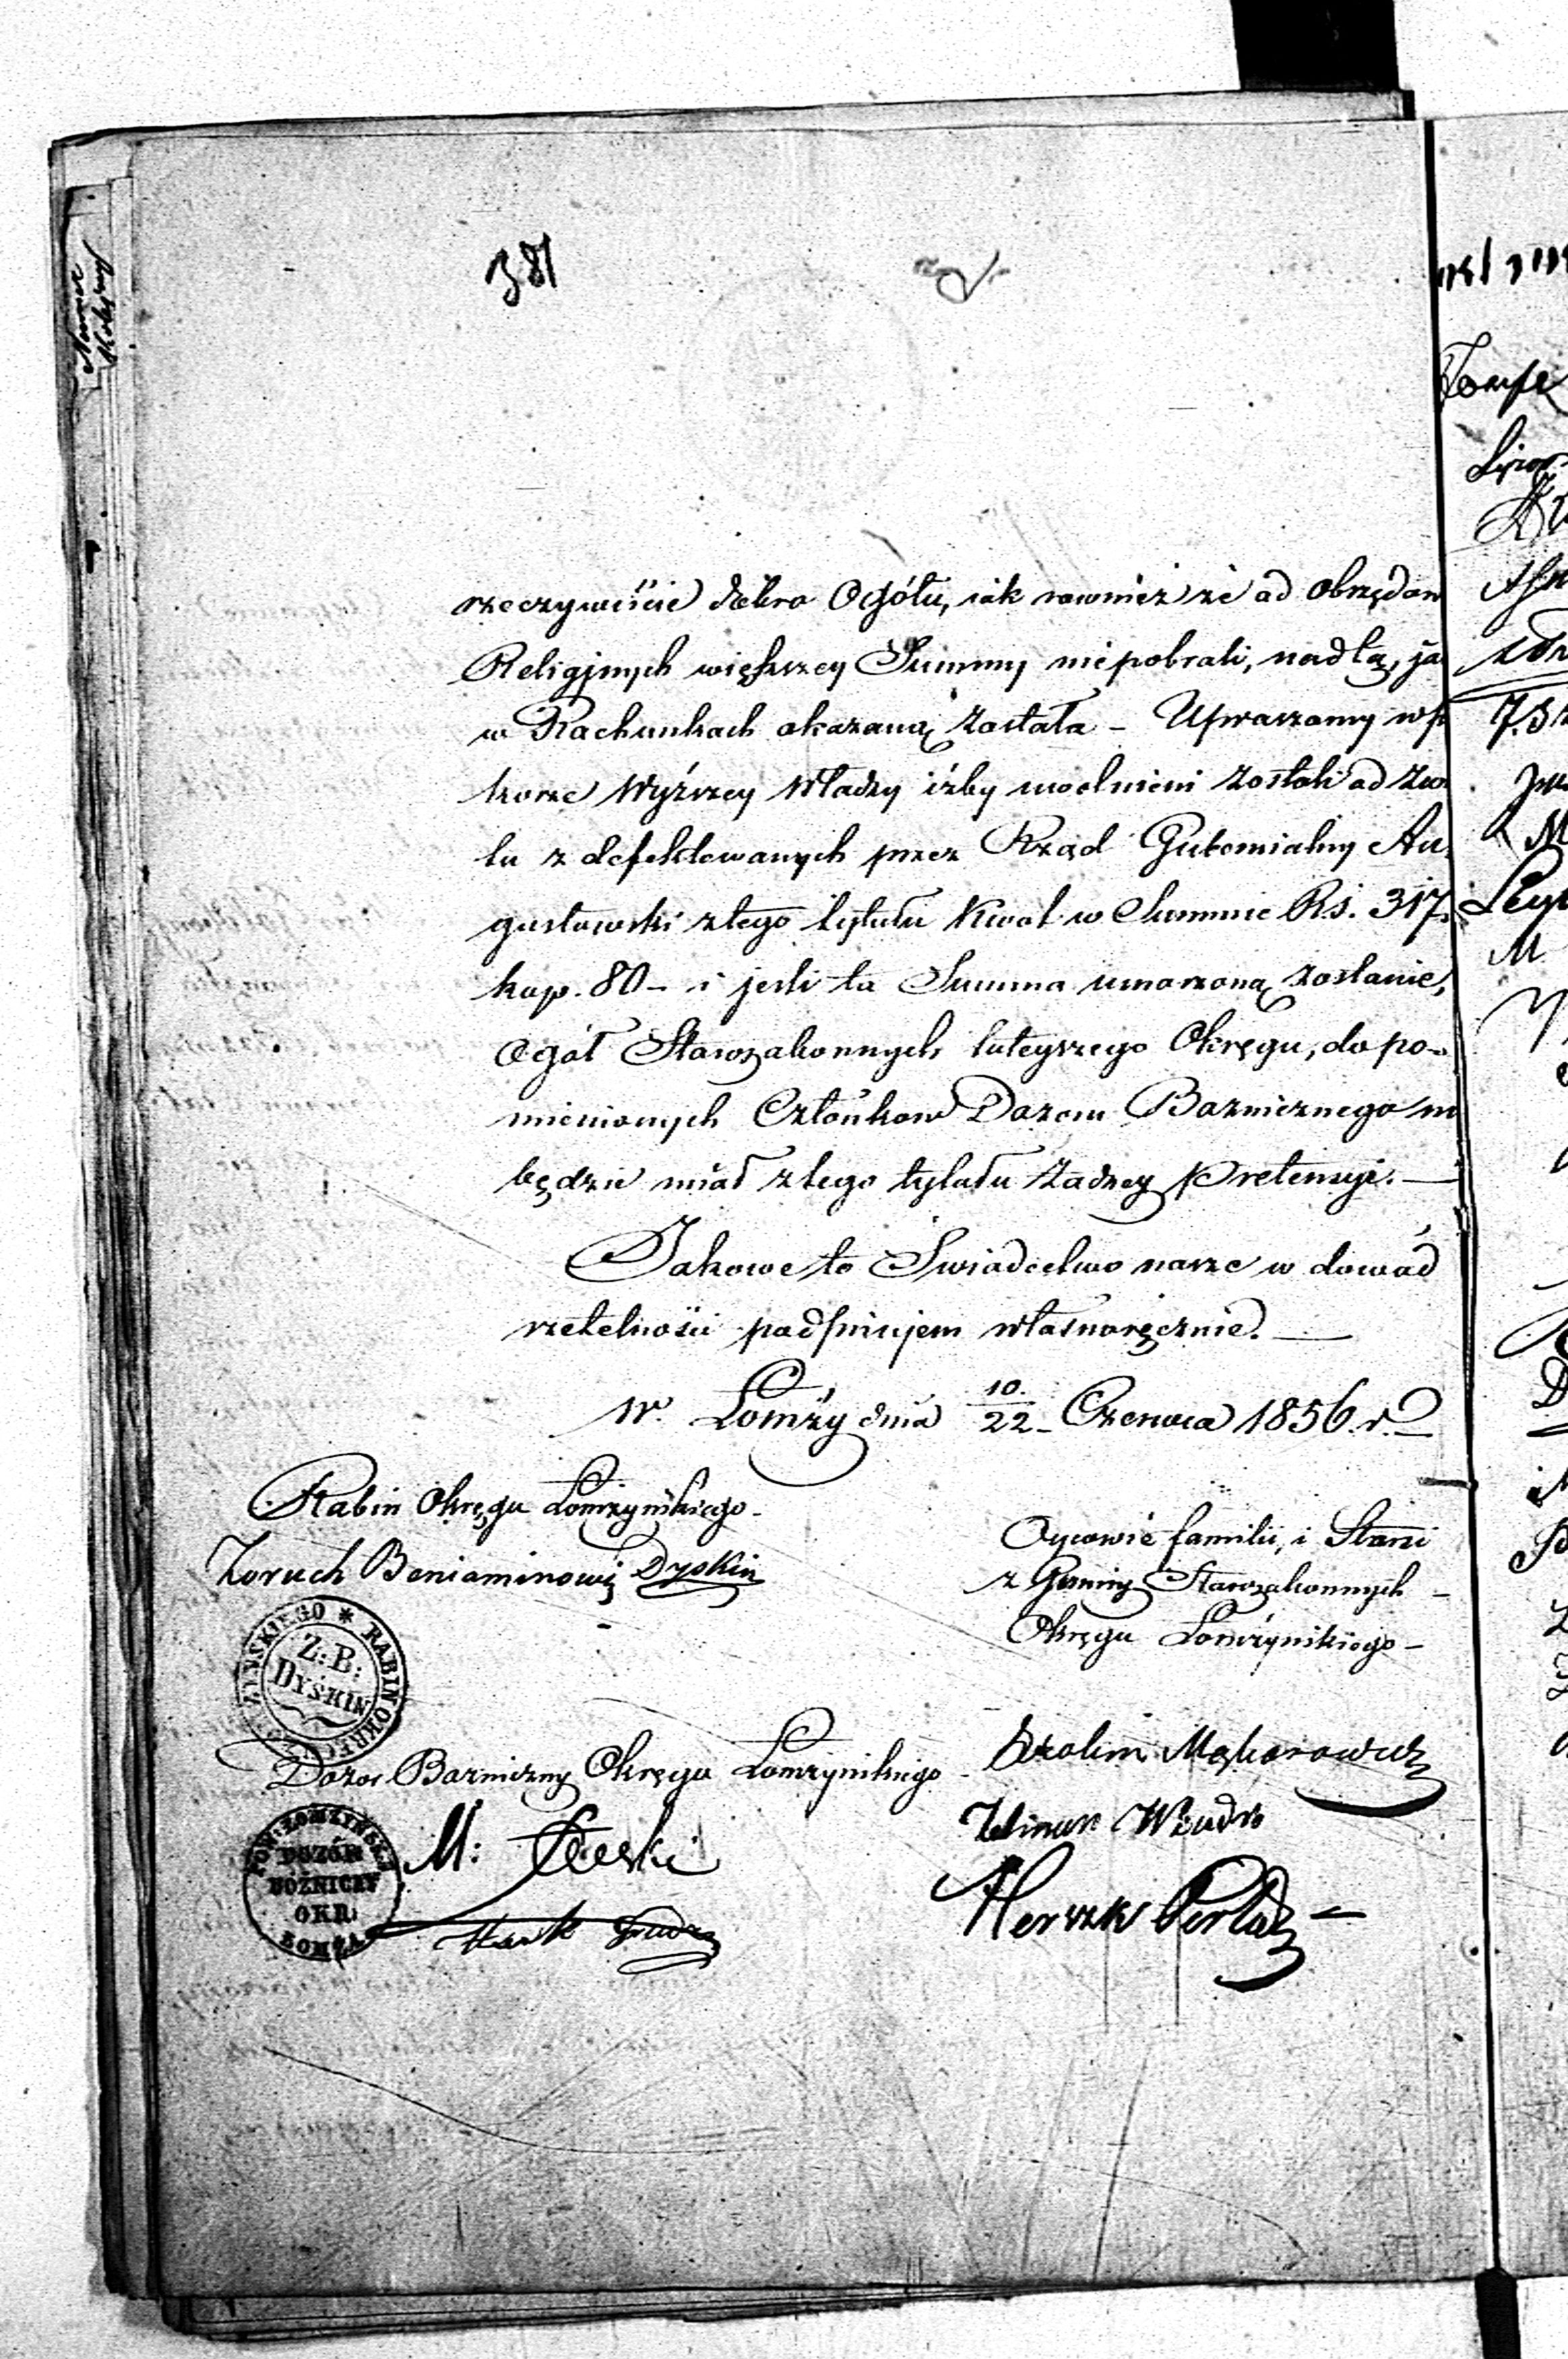 381
Numer
Kolejny
rzeczywiście dobro Ogółu, iak rownież że od obrzędow
Religijnych większey Summy niepobrali, nad tą, ja
w Rachunkach okazaną została – Upraszamy w po
korze Wyższey Władzy iżby uwolnieni zostali od zwro
tu zdefektowanych przez Rząd Gubernialny Au-
gustowski z tego tytułu kwot w Summie Rs. 317.
kop. 80 – i jeśli ta Summa umorzoną zostanie,
Ogół Starozakonnych tuteyszego Okręgu, do po-
mienionych Członkow Dozoru Bozniczego ni
będzie miał z tego tytułu żadney Pretensyi. —
Jakowe to Swiadectwo nasze w dowód
rzetelności podpisujem własnoręcznie. —
w. Łomży dnia 10./22 – Czerwca 1856. r. –
Rabin Okręgu Łomżyńskiego –
Zoruch Beniaminowi Dyskin
RABIN OKRĘGU ŁOMŻYŃSKIEGO * Z: B: DYSKIN
Oycowie familii, i Starsi
z Gminy Starozakonnych –
Okręgu Łomżyńskiego –
Dozor Bozniczny Okręgu Łomżyńskiego –
Szolim Mąkorowicz
POW: ŁOMZYNSKA
DOZÓR
BÓŻNICZY
OKR:
ŁOMŻA
M:
Herszk Perla